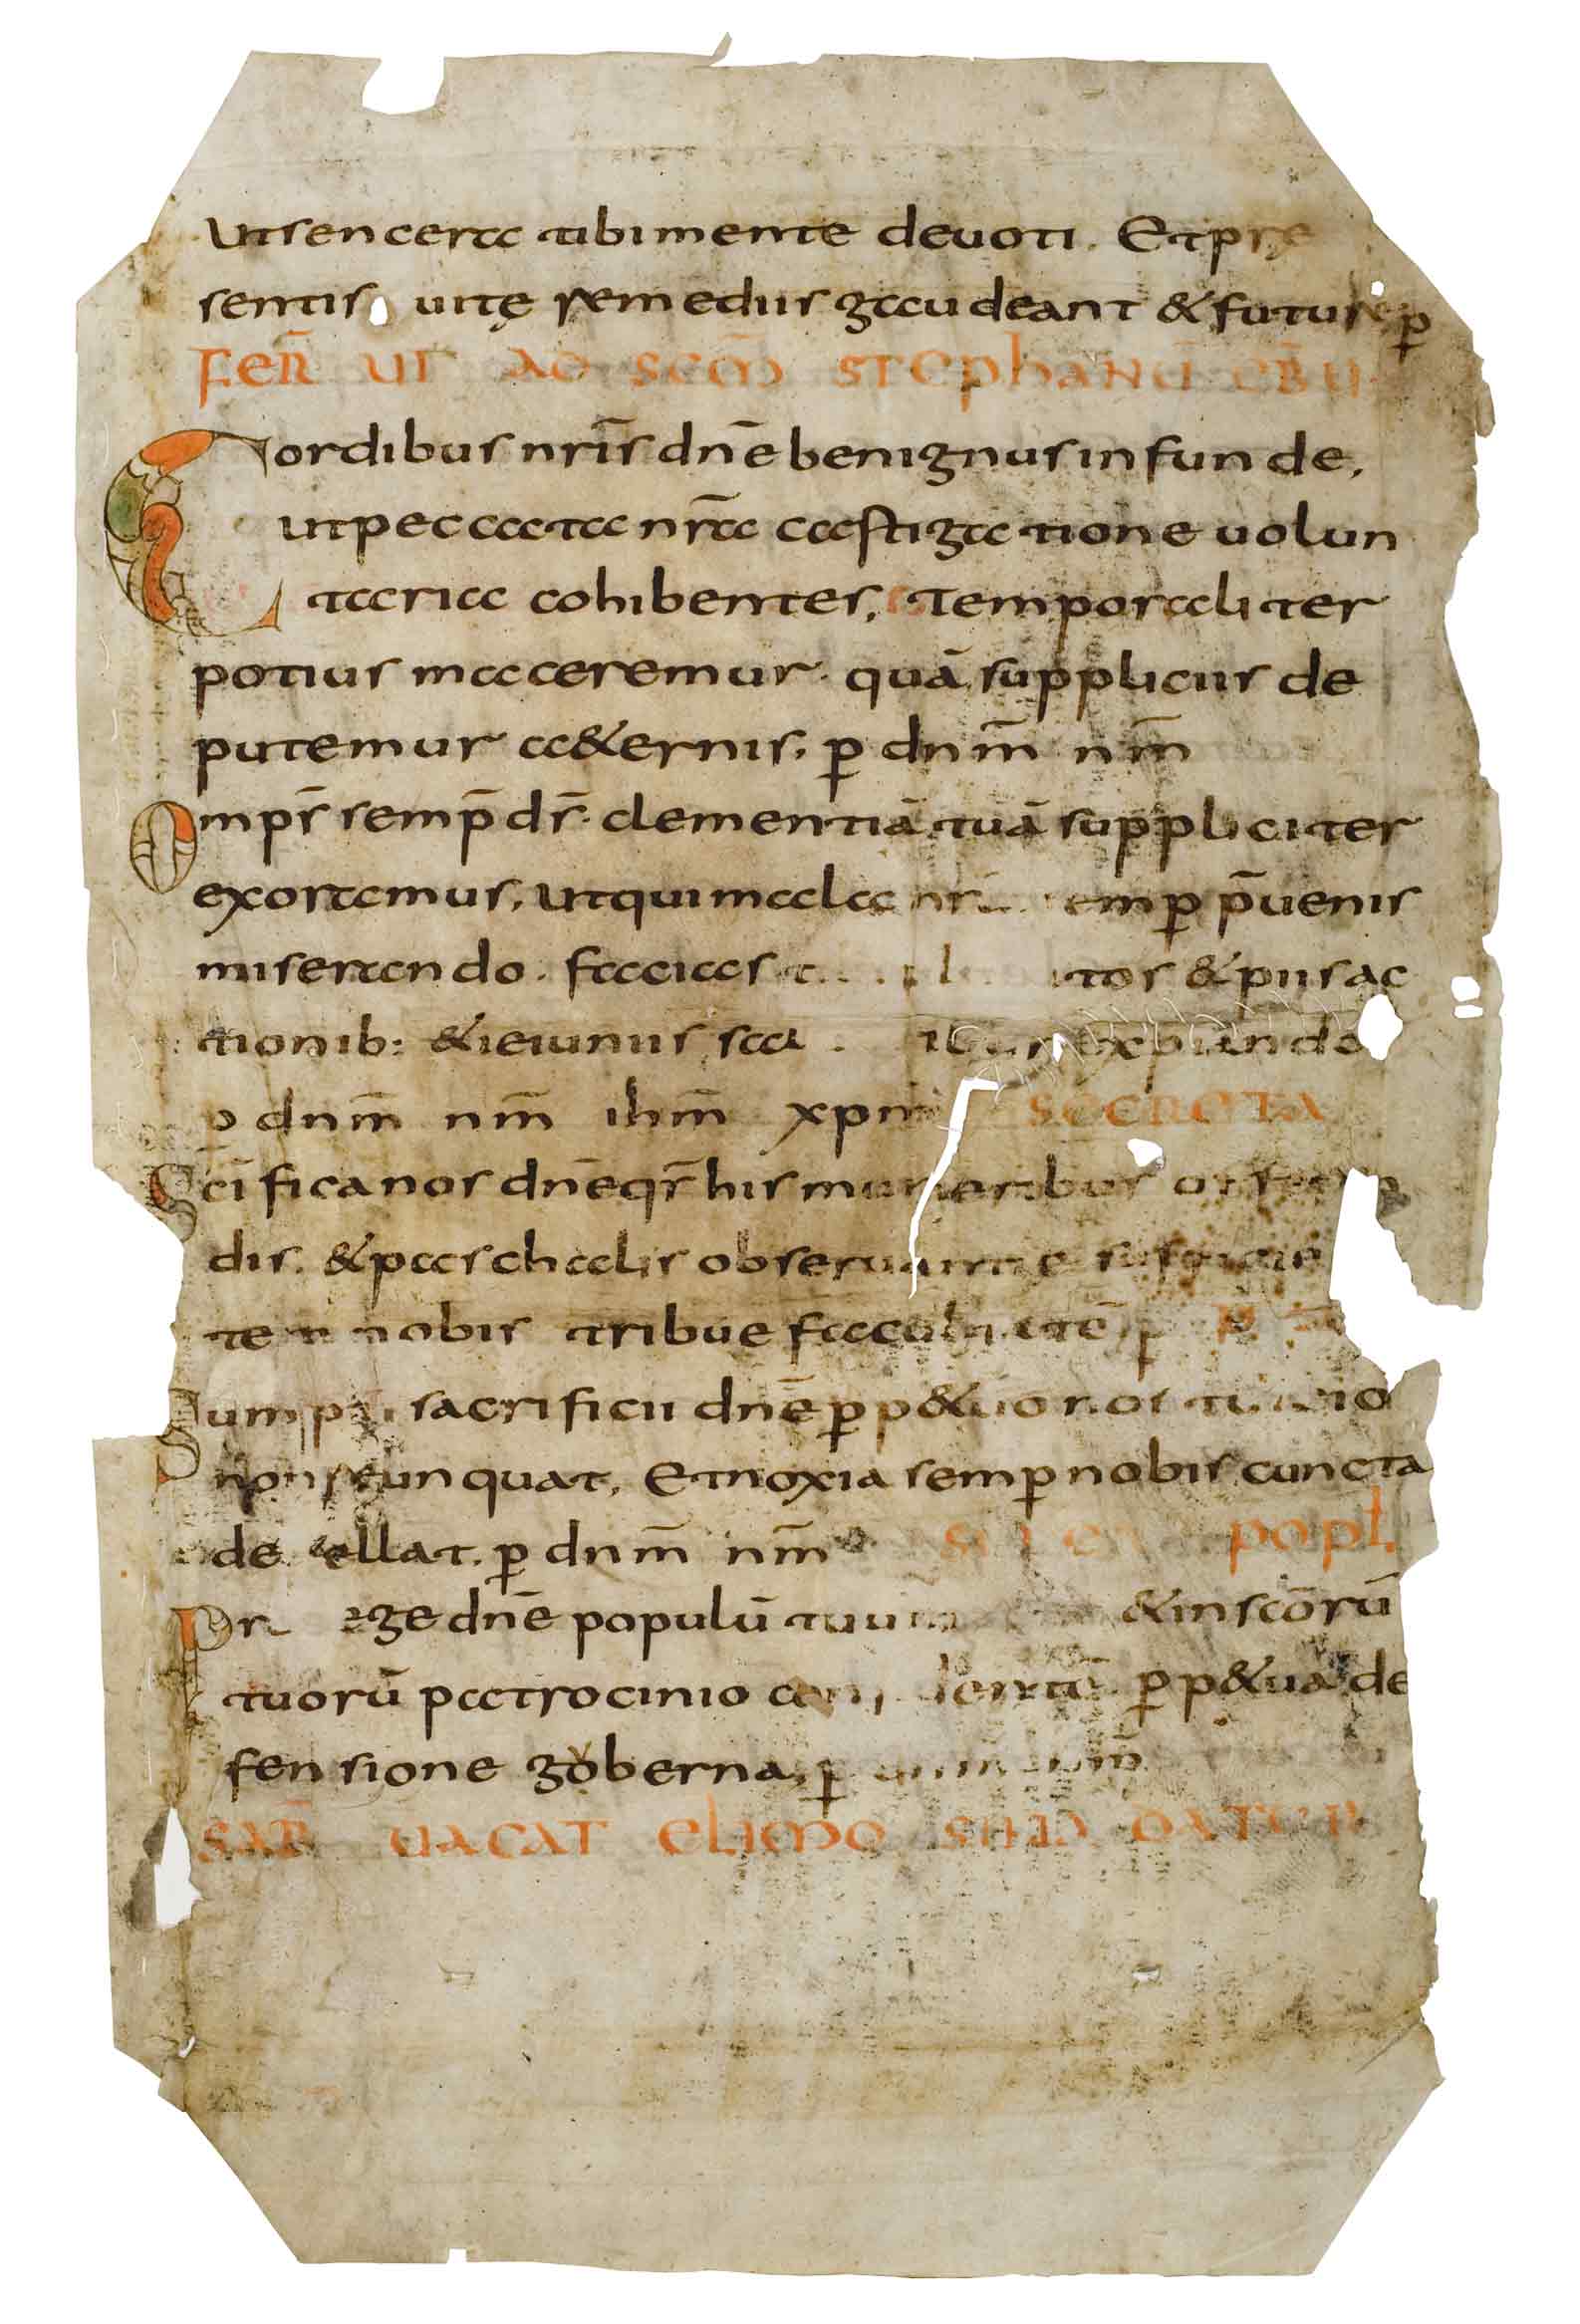 Ut sencera tibi mente deuoti. Et prę
sentis uitę remediis gaudeant & futurę p̲
FER̄ UI AD SC̄M STEPHANŪ
Cordibus nr̄is dn̄e benignus infunde,
ut peccata nr̄a castigatione uolun
taria cohibentes, Temporaliter
potius maceremur. quā suppliciis de
putemur a&ernis, p̲ dnm̄ nm̄
Omps̄ semp̄ ds̄. clementiā tuā suppliciter
exoramus, ut qui mala semp̲ p̄uenis
miserando. facias & piis ac
tionib: & ieiuniis expiando
p̲ dnm̄ nm̄ ihm̄ xpm̄ SECRETA
Sc̄ifica nos dn̄e qs̄ his muneribus
dis. & paschalis obseruantię
tem nobis tribue
Sumpti sacrificii dn̄e p̲p&uo nos tuicio
non relinquat, Et noxia semp̲ nobis cuncta
depellat. p̲ dnm̄ nm̄ popl.
dn̄e populū tuum & in sc̄orū
tuorū patrocinio p̲p&ua de
fensione goberna, p̲
SAB̄ UACAT ELIMOSINA DATUR